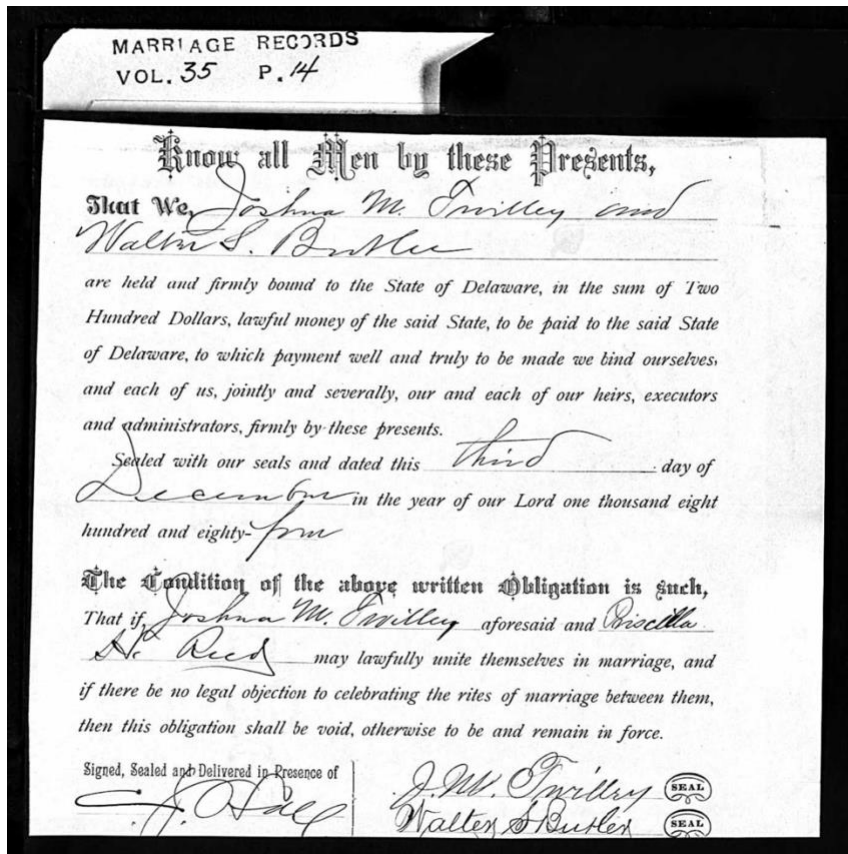 MARRIAGE RECORDS
VOL. 35 P. 14
Know all Men by these Presents,
That We, Joshua M. Twilley and
Walter S. Butler
are held and firmly bound to the State of Delaware, in the sum of Two
Hundred Dollars, lawful money of the said State, to be paid to the said State
of Delaware, to which payment well and truly to be made we bind ourselves,
and each of us, jointly and severally, our and each of our heirs, executors
and administrators, firmly by these presents.
Sealed with our seals and dated this third day of
December in the year of our Lord one thousand eight
hundred and eighty-four
The Condition of the above written Obligation is such,
That if, Joshua M. Twilley aforesaid and Priscilla
H. Reed may lawfully unite themselves in marriage, and
if there be no legal objection to celebrating the rites of marriage between them,
then this obligation shall be void, otherwise to be and remain in force.
Signed, Sealed and Delivered in Presence of
J. M. Twilley SEAL
Walter S Butler SEAL